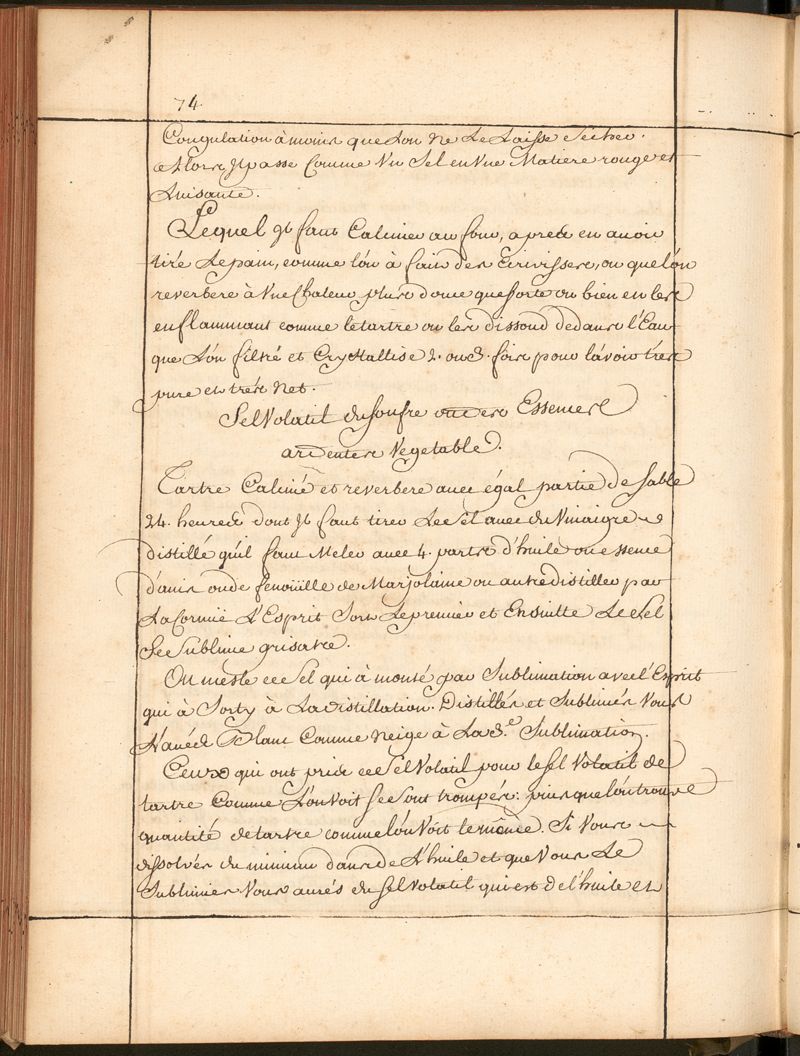 74.
Congulation à moins que Lon Ne Le Laisse Seicher.
et Lors Il passe Comme Vn Sel en Vne Matiere rouge et
Luisante.
Lequel Il faut Calciner au four, apres en auoir
tiré Le pain, comme lón à fair des Ecrivisses, ou que lón
reverbere à Vne Chaleur plus douce que forte ou bien en les
enflammant comme le tartre ou les dissoud dedans l'Eau
que Lón filtré et Crystallise 2. ou 3. fois pour lávoir tres
pure et trés Net.
Sel Volatil du soufre ou des Essences
ardentes Vegetables.
Tartre Calciné et reverbere avec égal partie de Sable
24. heures dont Il faut tirer Le Sel avec du Vinaigre
distillé qu'il faut Meler avec 4. parts d'huile ou essence
d'anis ou de fenoüille de Marjolaine ou autre distiller par
La Cornüe L'Esprit Sort Le premier et Ensuitte Le Sel
Se Sublime grisatre.
On mesle ce Sel qui à monté par Sublimation avec l'Esprit
qui à Sorty à La distillation. Distillés et Sublimés Vous
L'aurés Blanc Comme Neige à La 3.e Sublimation.
Ceux qui ont pris ce Sel Volatil pour le Sel Volatil de
tartre Comme L'on Voit Se sont trompés: puis que lón trouve
quantité de tartre comme lón Voit le même. Si Vous
dissolvés du minium dans de L'huile et que Vous Le
Sublimies Vous aurés du Sel Volatil qui est de l'huile et